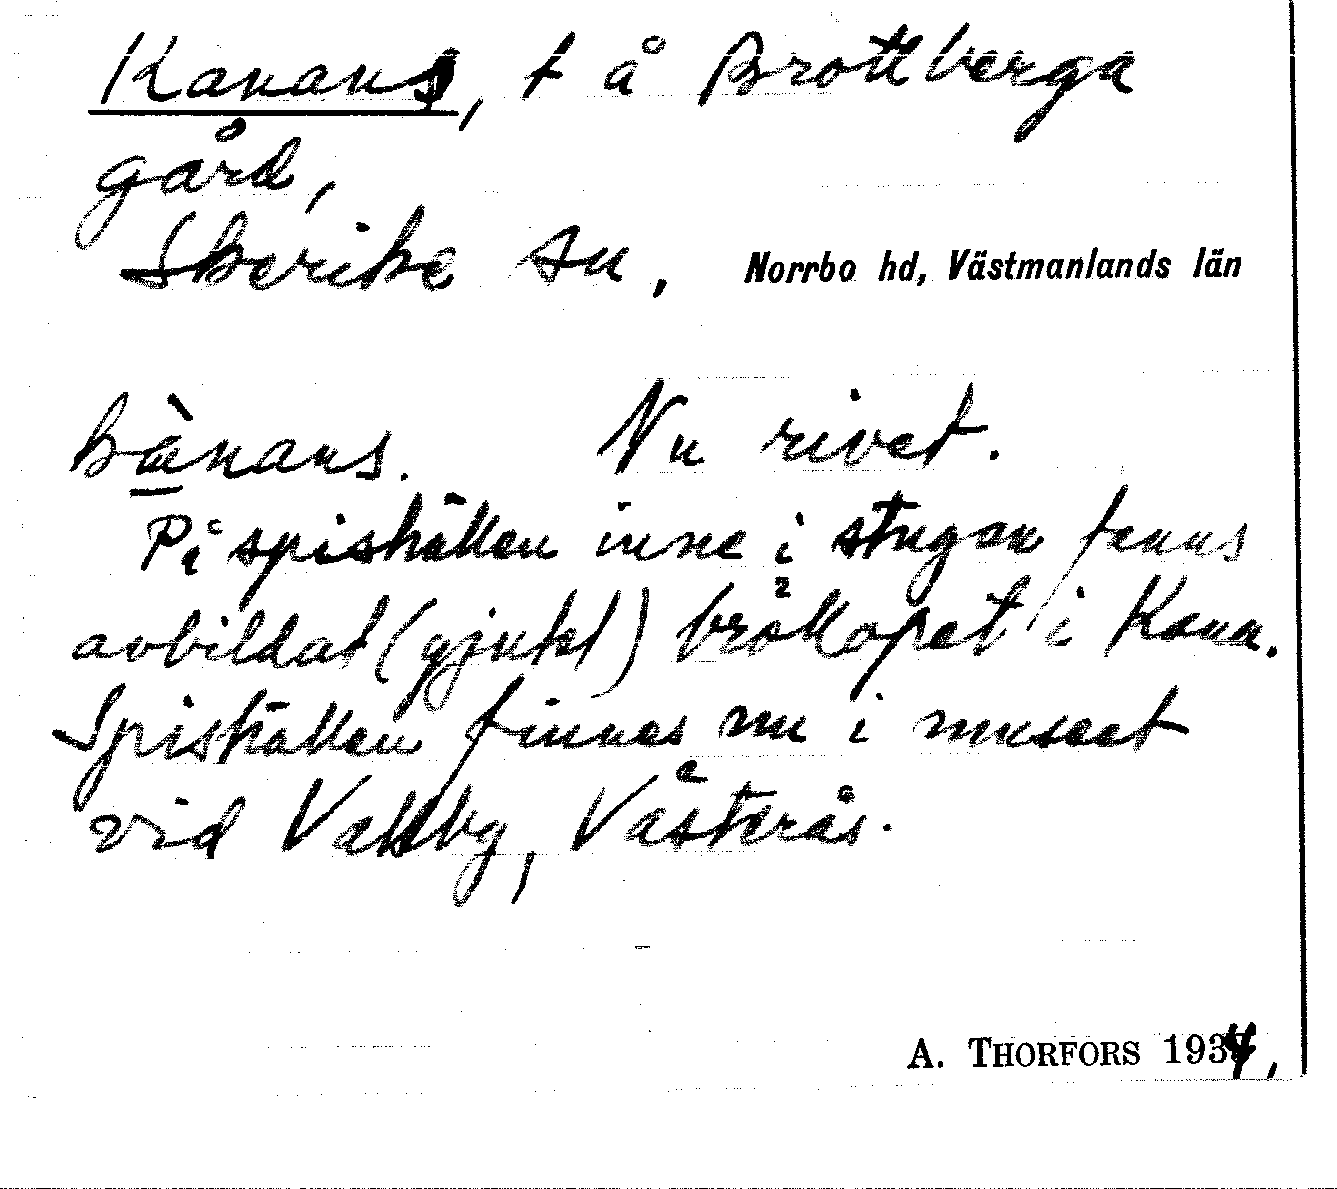 Kanans, t å Brottberga
gård,
Skerike sn, Norrbo hd, Västmanlands län
kànans. Nu rivet.
På spishällen inne i stugan fanns
avbildat (gjutet) bröllopet i Kana.
Spishällen finnes nu i museet
vid Vallby, Västerås.
A. THORFORS 1934,